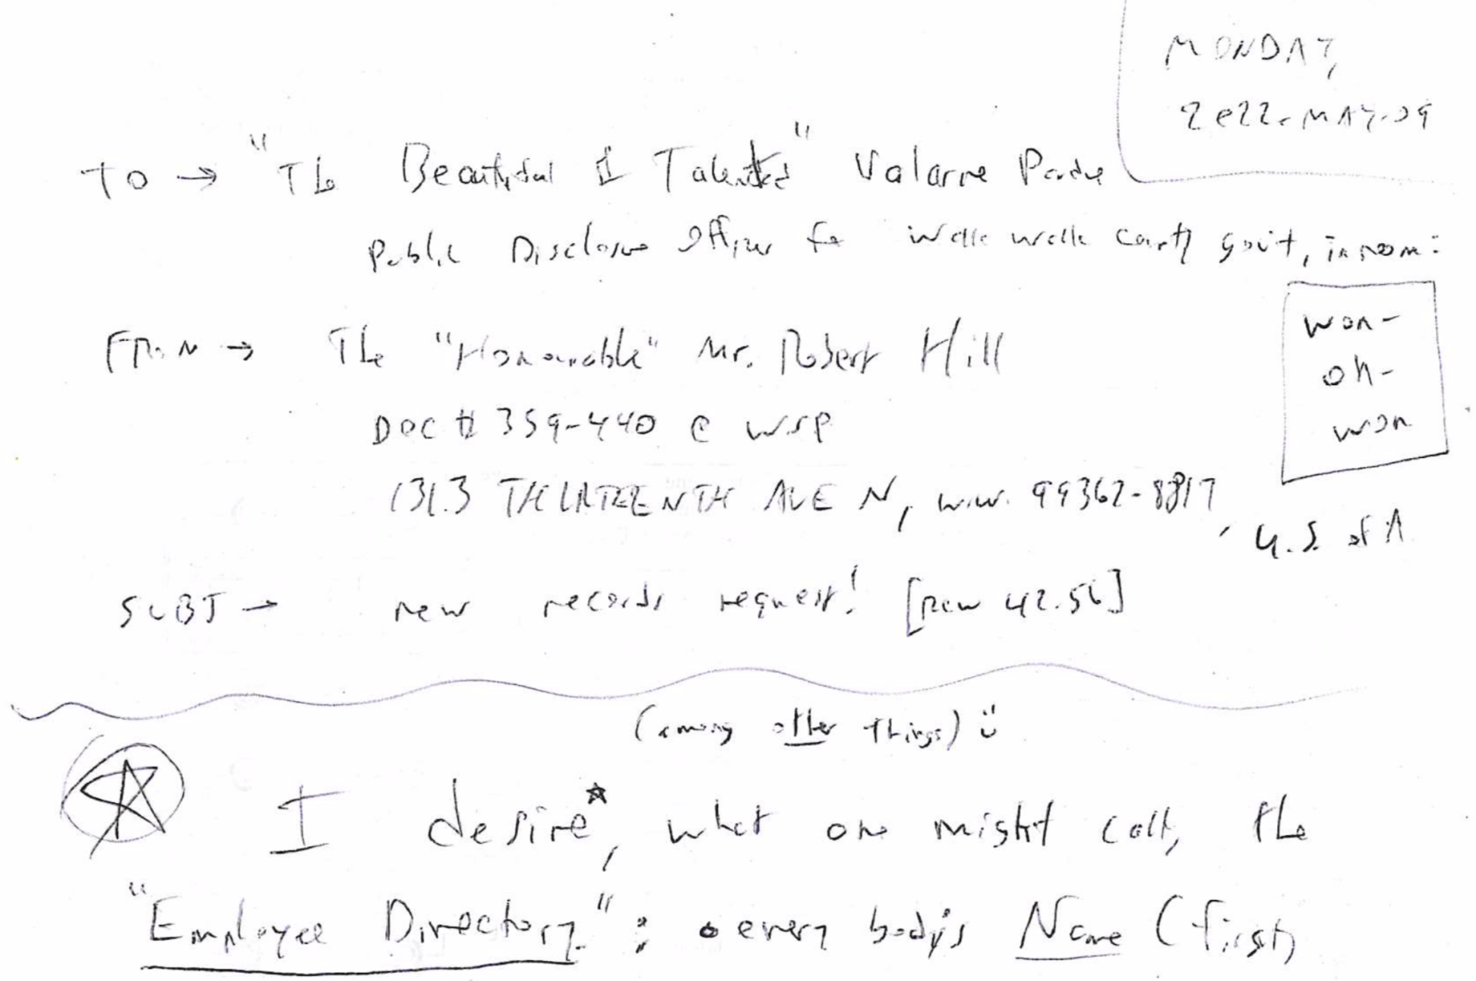 MONDAY,
2022-MAY-09
TO → "The Beautiful & Talented" Valarie
Public Disclosure Officer for Walla Walla County gov't, in room:
FROM → The "Honourable" Mr. Robert Hill
DOC # 359-440 @ WSP
1313 THIRTEENTH AVE N, W.W. 99362-8817, U.S. of A.
won-
oh-
won
SUBJ → new records request! [RCW 42.56]
(among other things) ü
I desire*, what one might call, the
"Employee Directory": • every body's Name (first,